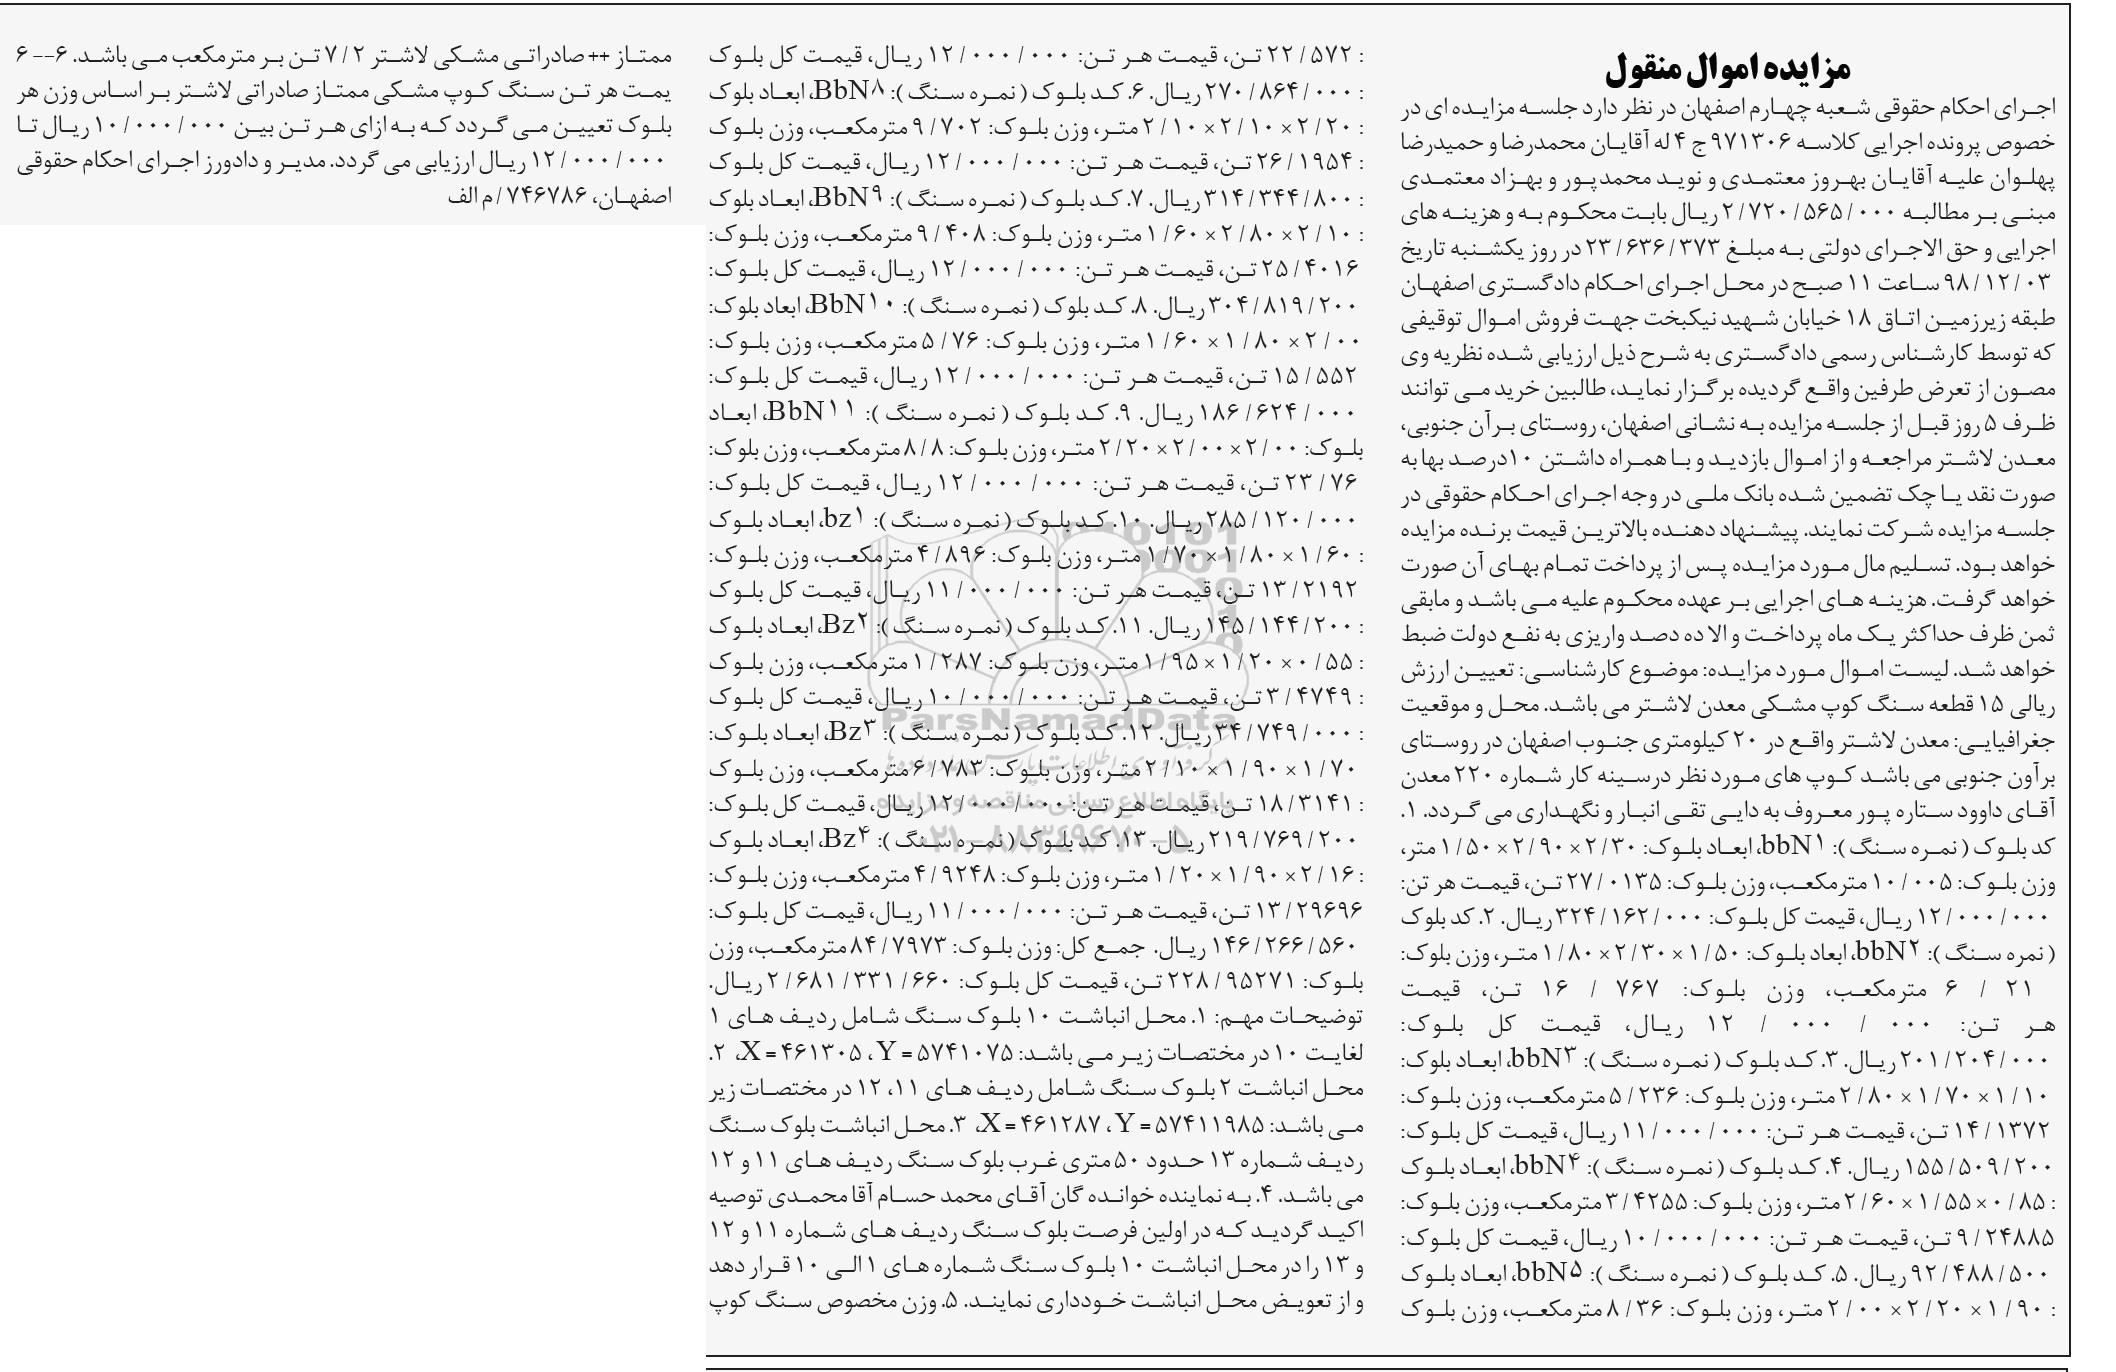 مزایده اموال منقول
اجرای احکام حقوقی شعبه چهارم اصفهان در نظر دارد جلسه مزایده ای در
خصوص پرونده اجرایی کلاسه ۹۷۱۳۰۶ ج ۴ له آقایان محمدرضا و حمیدرضا
پهلوان علیه آقایان بهروز معتمدی و نوید محمدپور و بهزاد معتمدی
مبنی بر مطالبه ۲/۷۲۰/۵۶۵/۰۰۰ ریال بابت محکوم به و هزینه های
اجرایی و حق الاجرای دولتی به مبلغ ۲۳/۶۳۶/۳۷۳ در روز یکشنبه تاریخ
۹۸/۱۲/۰۳ ساعت ۱۱ صبح در محل اجرای احکام دادگستری اصفهان
طبقه زیرزمین اتاق ۱۸ خیابان شهید نیکبخت جهت فروش اموال توقیفی
که توسط کارشناس رسمی دادگستری به شرح ذیل ارزیابی شده نظریه وی
مصون از تعرض طرفین واقع گردیده برگزار نماید، طالبین خرید می توانند
ظرف ۵ روز قبل از جلسه مزایده به نشانی اصفهان، روستای برآن جنوبی،
معدن لاشتر مراجعه و از اموال بازدید و با همراه داشتن ۱۰درصد بها به
صورت نقد یا چک تضمین شده بانک ملی در وجه اجرای احکام حقوقی در
جلسه مزایده شرکت نمایند. پیشنهاد دهنده بالاترین قیمت برنده مزایده
خواهد بود. تسلیم مال مورد مزایده پس از پرداخت تمام بهای آن صورت
خواهد گرفت. هزینه های اجرایی بر عهده محکوم علیه می باشد و مابقی
ثمن ظرف حداکثر یک ماه پرداخت و الا ده دصد واریزی به نفع دولت ضبط
خواهد شد. لیست اموال مورد مزایده: موضوع کارشناسی: تعیین ارزش
ریالی ۱۵ قطعه سنگ کوپ مشکی معدن لاشتر می باشد. محل و موقعیت
جغرافیایی: معدن لاشتر واقع در ۲۰ کیلومتری جنوب اصفهان در روستای
برآون جنوبی می باشد کوپ های مورد نظر درسینه کار شماره ۲۲۰ معدن
آقای داوود ستاره پور معروف به دایی تقی انبار و نگهداری می گردد. ۱.
کد بلوک (نمره سنگ): bbN۱، ابعاد بلوک: ۲/۳۰×۲/۹۰×۱/۵۰ متر،
وزن بلوک: ۱۰/۰۰۵ مترمکعب، وزن بلوک: ۲۷/۰۱۳۵ تن، قیمت هر تن:
۱۲/۰۰۰/۰۰۰ ریال، قیمت کل بلوک: ۳۲۴/۱۶۲/۰۰۰ ریال. ۲. کد بلوک
(نمره سنگ): bbN۲، ابعاد بلوک: ۱/۵۰×۲/۳۰×۱/۸۰ متر، وزن بلوک:
۶/۲۱ مترمکعب، وزن بلوک: ۱۶/۷۶۷ تن، قیمت
هر تن: ۱۲/۰۰۰/۰۰۰ ریال، قیمت کل بلوک:
۲۰۱/۲۰۴/۰۰۰ ریال. ۳. کد بلوک (نمره سنگ): bbN۳، ابعاد بلوک:
۱/۱۰×۱/۷۰×۲/۸۰ متر، وزن بلوک: ۵/۲۳۶ مترمکعب، وزن بلوک:
۱۴/۱۳۷۲ تن، قیمت هر تن: ۱۱/۰۰۰/۰۰۰ ریال، قیمت کل بلوک:
۱۵۵/۵۰۹/۲۰۰ ریال. ۴. کد بلوک (نمره سنگ): bbN۴، ابعاد بلوک
: ۰/۸۵×۱/۵۵×۲/۶۰ متر، وزن بلوک: ۳/۴۲۵۵ مترمکعب، وزن بلوک:
۹/۲۴۸۸۵ تن، قیمت هر تن: ۱۰/۰۰۰/۰۰۰ ریال، قیمت کل بلوک:
۹۲/۴۸۸/۵۰۰ ریال. ۵. کد بلوک (نمره سنگ): bbN۵، ابعاد بلوک
: ۱/۹۰×۲/۲۰×۲/۰۰ متر، وزن بلوک: ۸/۳۶ مترمکعب، وزن بلوک
: ۲۲/۵۷۲ تن، قیمت هر تن: ۱۲/۰۰۰/۰۰۰ ریال، قیمت کل بلوک
: ۲۷۰/۸۶۴/۰۰۰ ریال. ۶. کد بلوک (نمره سنگ): BbN۸، ابعاد بلوک
: ۲/۲۰×۲/۱۰×۲/۱۰ متر، وزن بلوک: ۹/۷۰۲ مترمکعب، وزن بلوک
: ۲۶/۱۹۵۴ تن، قیمت هر تن: ۱۲/۰۰۰/۰۰۰ ریال، قیمت کل بلوک
: ۳۱۴/۳۴۴/۸۰۰ ریال. ۷. کد بلوک (نمره سنگ): BbN۹، ابعاد بلوک
: ۲/۱۰×۲/۸۰×۱/۶۰ متر، وزن بلوک: ۹/۴۰۸ مترمکعب، وزن بلوک:
۲۵/۴۰۱۶ تن، قیمت هر تن: ۱۲/۰۰۰/۰۰۰ ریال، قیمت کل بلوک:
۳۰۴/۸۱۹/۲۰۰ ریال. ۸. کد بلوک (نمره سنگ): BbN۱۰، ابعاد بلوک:
۲/۰۰×۱/۸۰×۱/۶۰ متر، وزن بلوک: ۵/۷۶ مترمکعب، وزن بلوک:
۱۵/۵۵۲ تن، قیمت هر تن: ۱۲/۰۰۰/۰۰۰ ریال، قیمت کل بلوک:
۱۸۶/۶۲۴/۰۰۰ ریال. ۹. کد بلوک (نمره سنگ): BbN۱۱، ابعاد
بلوک: ۲/۰۰×۲/۰۰×۲/۲۰ متر، وزن بلوک: ۸/۸ مترمکعب، وزن بلوک:
۲۳/۷۶ تن، قیمت هر تن: ۱۲/۰۰۰/۰۰۰ ریال، قیمت کل بلوک:
۲۸۵/۱۲۰/۰۰۰ ریال. ۱۰. کد بلوک (نمره سنگ): bz۱، ابعاد بلوک
: ۱/۶۰×۱/۸۰×۱/۷۰ متر، وزن بلوک: ۴/۸۹۶ مترمکعب، وزن بلوک:
۱۳/۲۱۹۲ تن، قیمت هر تن: ۱۱/۰۰۰/۰۰۰ ریال، قیمت کل بلوک
: ۱۴۵/۱۴۴/۲۰۰ ریال. ۱۱. کد بلوک (نمره سنگ): Bz۲، ابعاد بلوک
: ۰/۵۵×۱/۲۰×۱/۹۵ متر، وزن بلوک: ۱/۲۸۷ مترمکعب، وزن بلوک
: ۳/۴۷۴۹ تن، قیمت هر تن: ۱۰/۰۰۰/۰۰۰ ریال، قیمت کل بلوک
: ۳۴/۷۴۹/۰۰۰ ریال. ۱۲. کد بلوک (نمره سنگ): Bz۳، ابعاد بلوک:
۱/۷۰×۱/۹۰×۲/۱۰ متر، وزن بلوک: ۶/۷۸۳ مترمکعب، وزن بلوک
: ۱۸/۳۱۴۱ تن، قیمت هر تن: ۱۲/۰۰۰/۰۰۰ ریال، قیمت کل بلوک:
۲۱۹/۷۶۹/۲۰۰ ریال. ۱۳. کد بلوک (نمره سنگ): Bz۴، ابعاد بلوک
: ۲/۱۶×۱/۹۰×۱/۲۰ متر، وزن بلوک: ۴/۹۲۴۸ مترمکعب، وزن بلوک:
۱۳/۲۹۶۹۶ تن، قیمت هر تن: ۱۱/۰۰۰/۰۰۰ ریال، قیمت کل بلوک:
۱۴۶/۲۶۶/۵۶۰ ریال. جمع کل: وزن بلوک: ۸۴/۷۹۷۳ مترمکعب، وزن
بلوک: ۲۲۸/۹۵۲۷۱ تن، قیمت کل بلوک: ۲/۶۸۱/۳۳۱/۶۶۰ ریال.
توضیحات مهم: ۱. محل انباشت ۱۰ بلوک سنگ شامل ردیف های ۱
لغایت ۱۰ در مختصات زیر می باشد: Y=۵۷۴۱۰۷۵ ، X=۴۶۱۳۰۵، ۲.
محل انباشت ۲ بلوک سنگ شامل ردیف های ۱۱، ۱۲ در مختصات زیر
می باشد: Y=۵۷۴۱۱۹۸۵ ، X=۴۶۱۲۸۷، ۳. محل انباشت بلوک سنگ
ردیف شماره ۱۳ حدود ۵۰ متری غرب بلوک سنگ ردیف های ۱۱ و ۱۲
می باشد. ۴. به نماینده خوانده گان آقای محمد حسام آقا محمدی توصیه
اکید گردید که در اولین فرصت بلوک سنگ ردیف های شماره ۱۱ و ۱۲
و ۱۳ را در محل انباشت ۱۰ بلوک سنگ شماره های ۱ الی ۱۰ قرار دهد
و از تعویض محل انباشت خودداری نمایند. ۵. وزن مخصوص سنگ کوپ
ممتاز ++ صادراتی مشکی لاشتر ۷/۲ تن بر مترمکعب می باشد. ۶--۶
یمت هر تن سنگ کوپ مشکی ممتاز صادراتی لاشتر بر اساس وزن هر
بلوک تعیین می گردد که به ازای هر تن بین ۱۰/۰۰۰/۰۰۰ ریال تا
۱۲/۰۰۰/۰۰۰ ریال ارزیابی می گردد. مدیر و دادورز اجرای احکام حقوقی
اصفهان، ۷۴۶۷۸۶/م الف
ParsNamadData
پایگاه اطلاع رسانی مناقصه و مزایده
۰۲۱-۸۸۳۴۹۶۷۰-۵